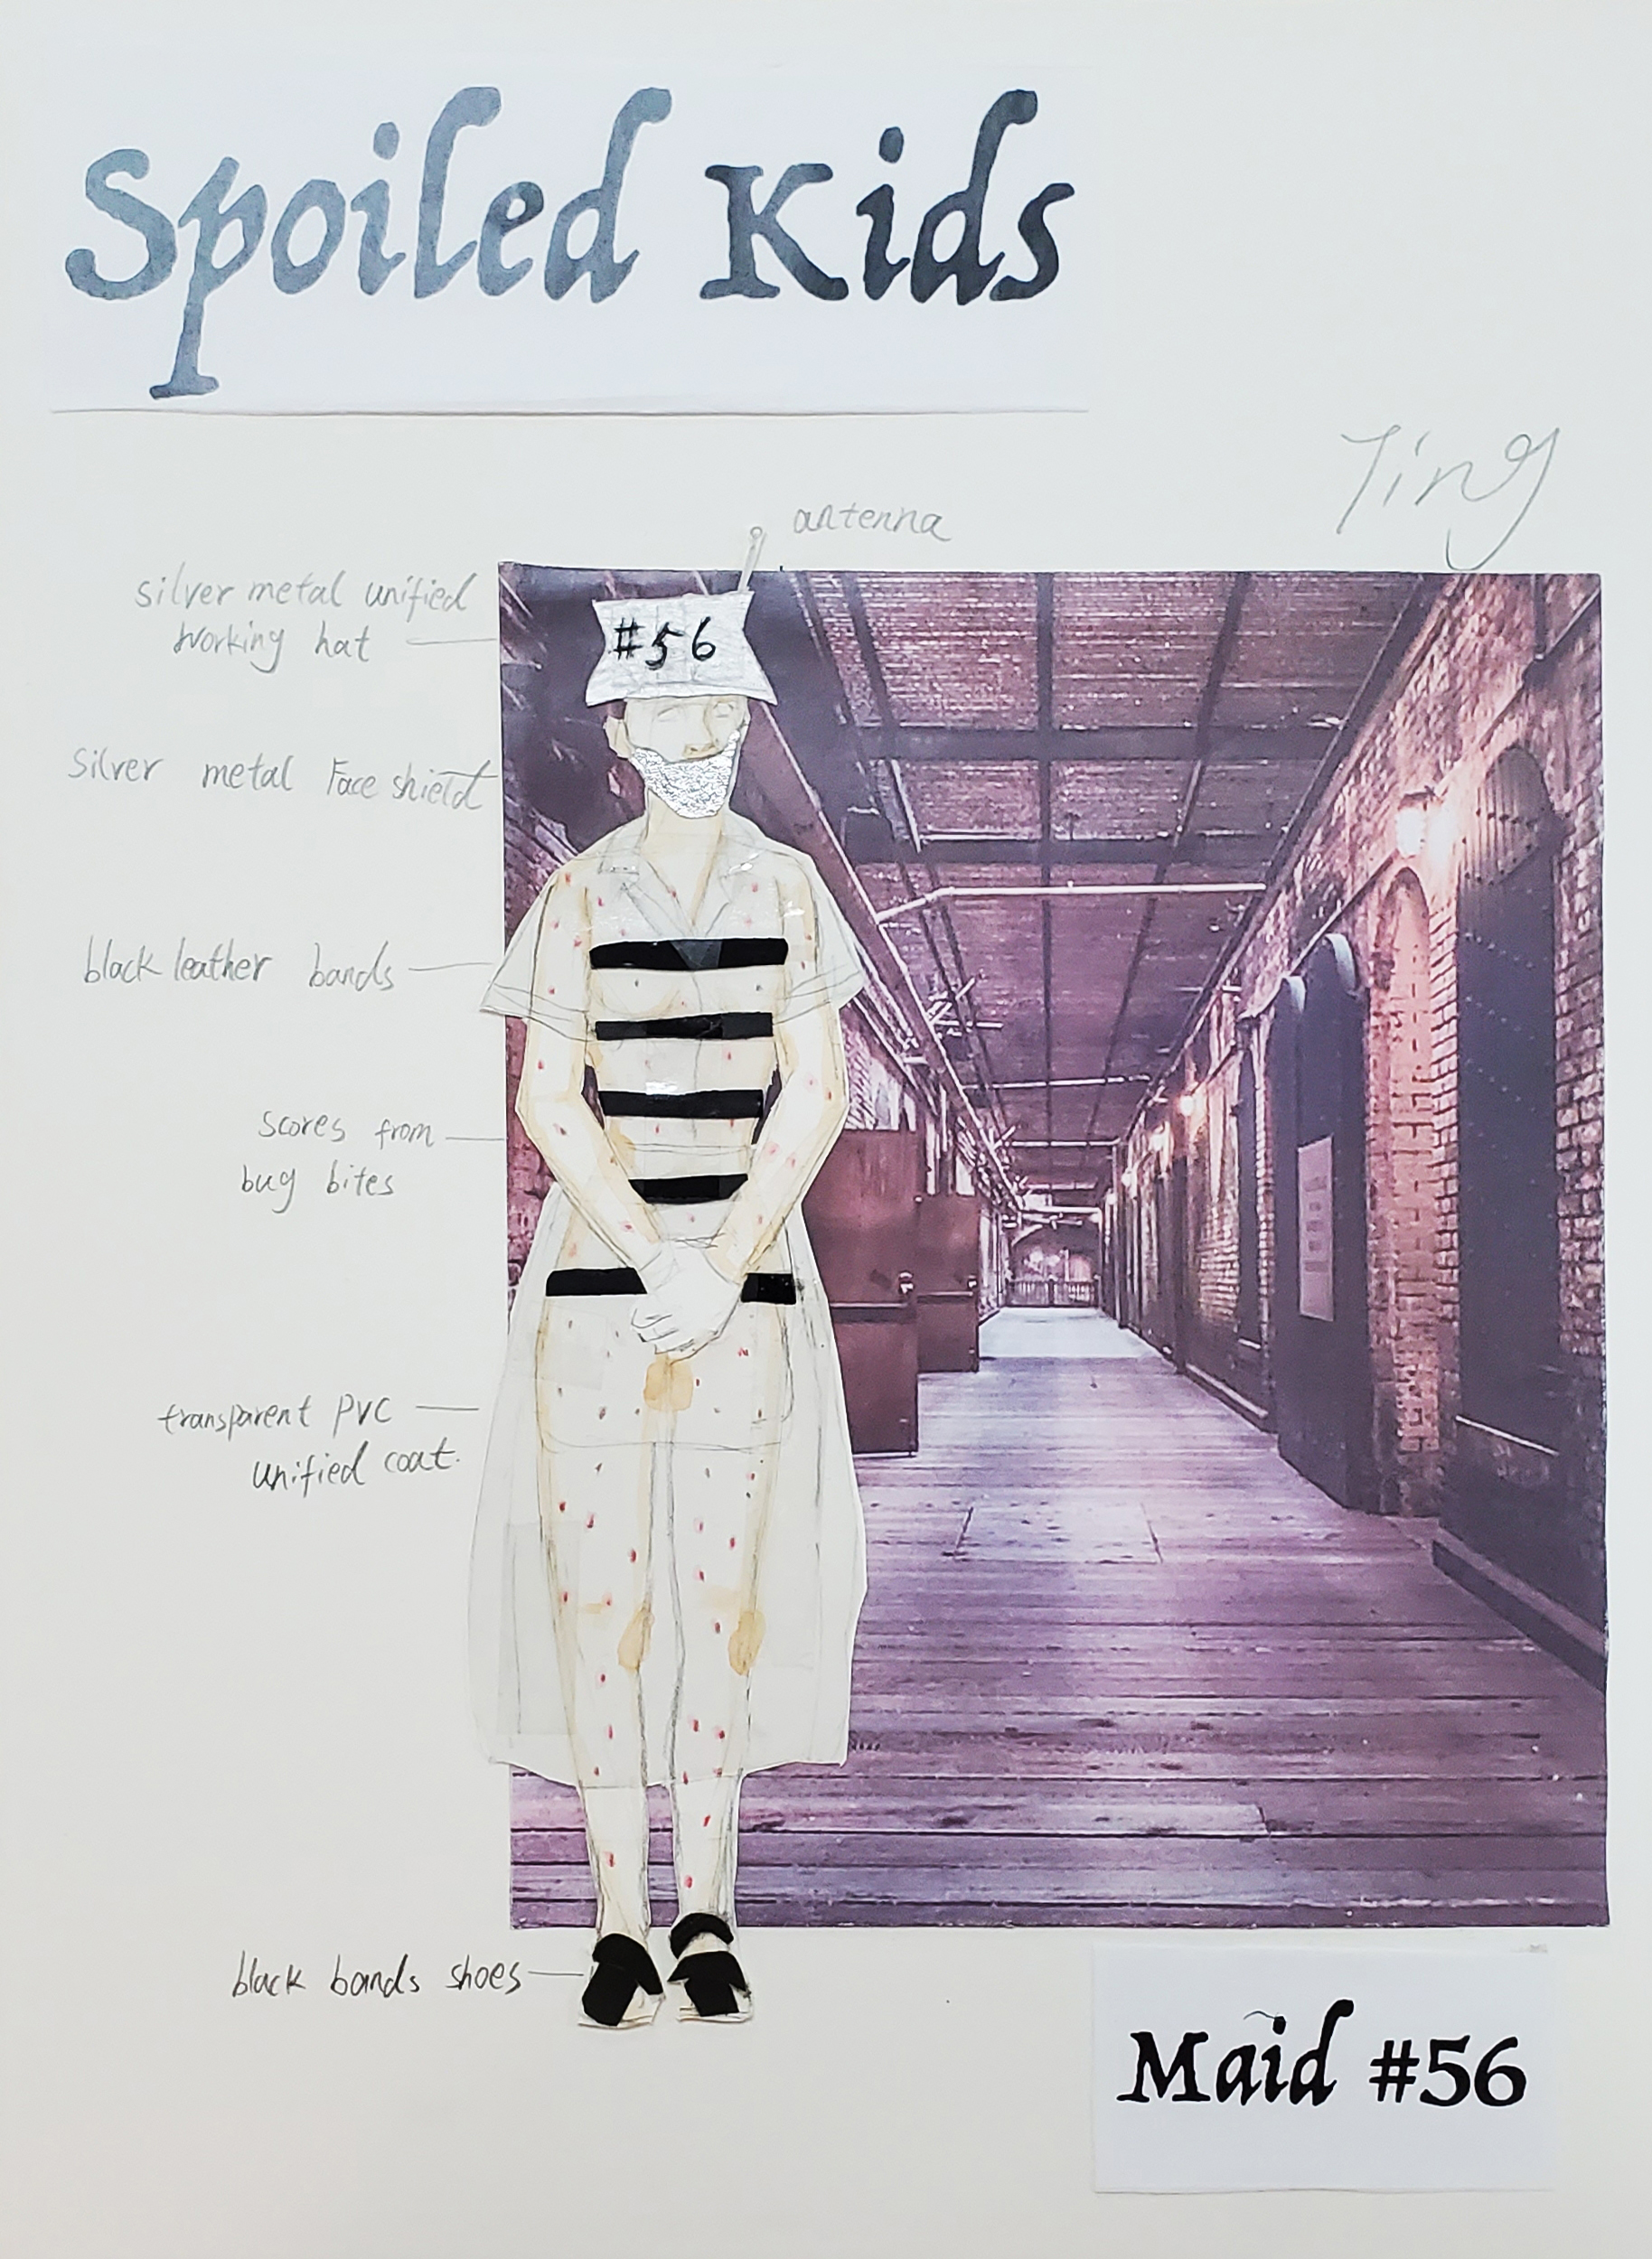 Spoiled Kids
Ting
antenna
silver metal unified
working hat
#56
Silver metal Face shield
black leather bands
scores from
bug bites
transparent PVC
unified coat.
black bands shoes
Maid #56